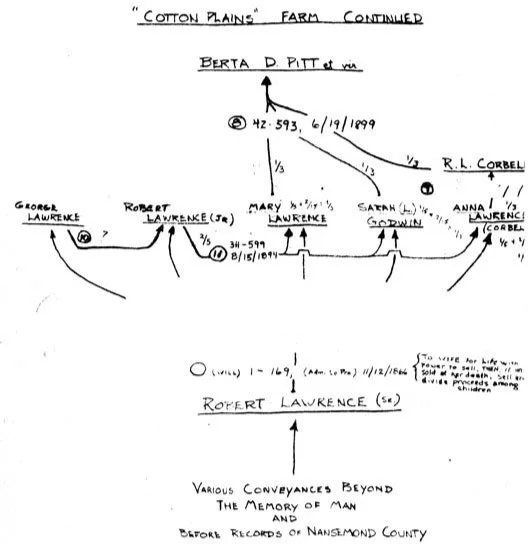 "COTTON PLAINS" FARM CONTINUED
BERTA D. PITT et vir
8 42-593, 6/19/1899
1/3
1/3
1/3
R.L. CORBEL
GEORGE
LAWRENCE
ROBERT
LAWRENCE (JR)
MARY
LAWRENCE
SARAH (L)
GODWIN
ANNA
LAWRENC
(CORBEL
10 ?
2/5
11 34-599
8/15/1894
(WILL) 1-169, (Adm. to Pro.) 11/12/1866
To WIFE for Life with
Power to sell, THEN if un
Sold at her death, sell an
divide proceeds among
children
ROBERT LAWRENCE (SR)
VARIOUS CONVEYANCES BEYOND
THE MEMORY OF MAN
AND
BEFORE RECORDS OF NANSEMOND COUNTY